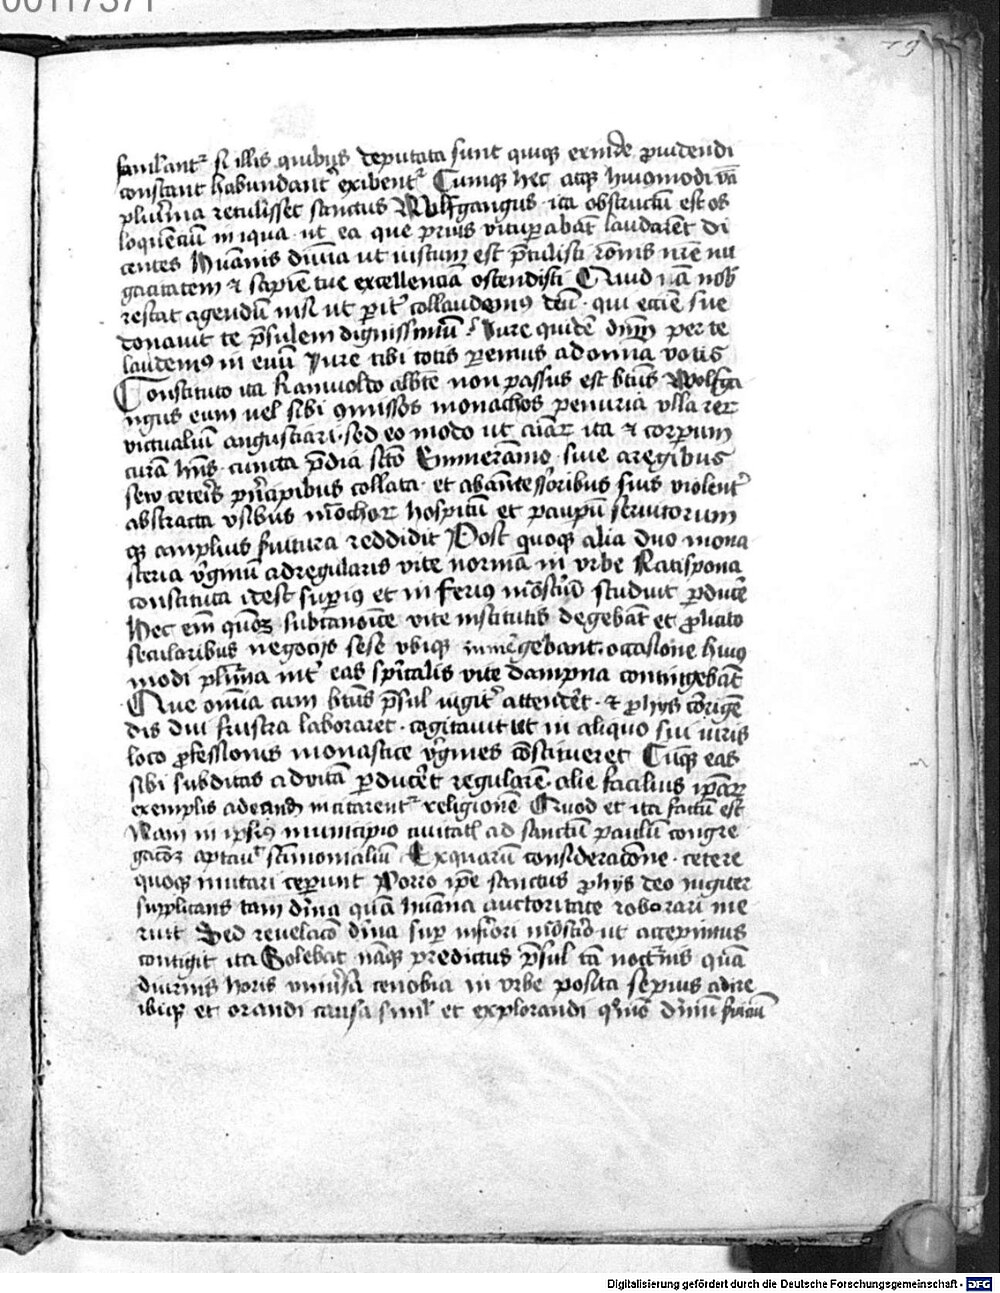 00117371
19
famulant᷑ si illis quibus deputata sunt quiq᷒ exinde p̱uidendi
constant habundant᷑ exibent᷑ Cumq᷒ hec atq᷒ huiusmodi
plurīa retulisset sanctus Wolfgangus ita obstructū est os
loquēciū iniqua ut ea que prius vituꝑabāt laudarēt di
centes Humanis diuīa ut iustum est p̄tulisti
gacitatem et sapiē tue excellenciā ostendisti Quid nā nob̄
restat agendū nisi ut ꝑit᷑ collaudemꝰ deū qui ecc̄ie sue
donauit te p̄sulem dignissimū Iure quidē dn̄m per te
laudemꝰ in euū Iure tibi totis ad omnia votis
Constituto ita Ramuoldo abb̄te non passus est bt̄us Wolfga
ngus eum uel sibi ꝯmissos monachos penuria vlla rer
victualiū angustiari sed eo modo ut aīar ita et corporum
curā hn̄s cuncta p̄dia sc̄to Emmerāmo siue a regibus
seu ceteris pr̄ncipibus collata et ab antecessoribus suis violent᷑
abstracta vsibus mōchor hospitū et pauꝑū seruitorum
q᷒ amplius futura reddidit Post quoq᷒ alia duo mona
steria v̓ginū ad regularis vite normā in vrbe Ratispona
constituta idest supius et inferius mōst̓iū studuit ꝑduce
Hec em̄ quidē sub canōice vite institutis degebāt et
secularibus negocijs sese vbiq᷒ immergebant occasione huiꝰ
modi plurīa int᷑ eas spūalis vite dampna contingebāt
Que omīa cum bt̄us p̄sul iugit᷑ attenderet et ꝓ hijs corrigē
dis diu frustra laboraret cogitauit ut in aliquo sui iuris
loco ꝓfessionis monastice v̓gines cōstitueret Cūq᷒ eas
sibi subditas ad vitā ꝑduceret regularē alie facilius ip̄ar
exemplis ad eand̄ incitarent᷑ religionē Quod et ita factū est
Nam in ipsius municipio ciuitat̄ ad sanctū paulū congre
gacōꝫ aptauit sāctimonialiū Ex quarū consideracōne cetere
quoq᷒ mutari ceperunt Porro ip̄e sanctus ꝓ hijs deo iugiter
supplicans tam diuīa quā humana auctoritate roborari me
ruit Sed reuelacō diuīa suꝑ inferiori mōst̓io ut accepimus
contigit ita Solebat nāq᷒ predictus p̄sul tā nocturnis quā
diurnis horis vniuersa cenobia in vrbe posita sepius adire
ibiq᷒ et orandi causa simul et explorandi
Digitalisierung gefördert durch die Deutsche Forschungsgemeinschaft - DFG